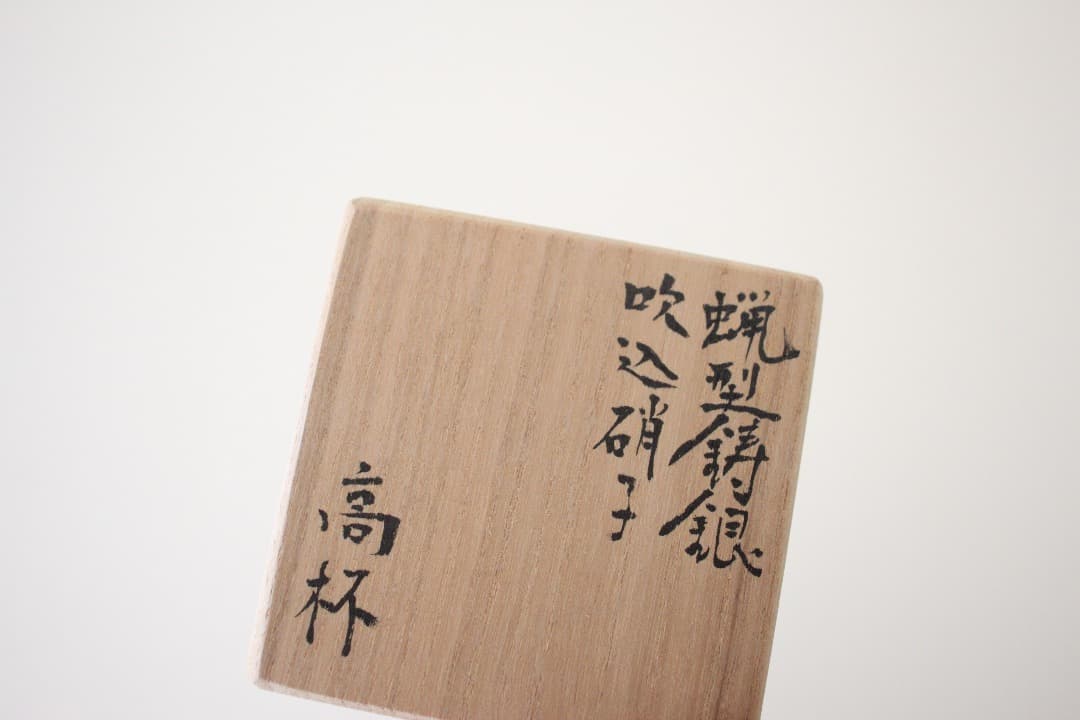 蝋型鋳銀
吹込硝子
高杯